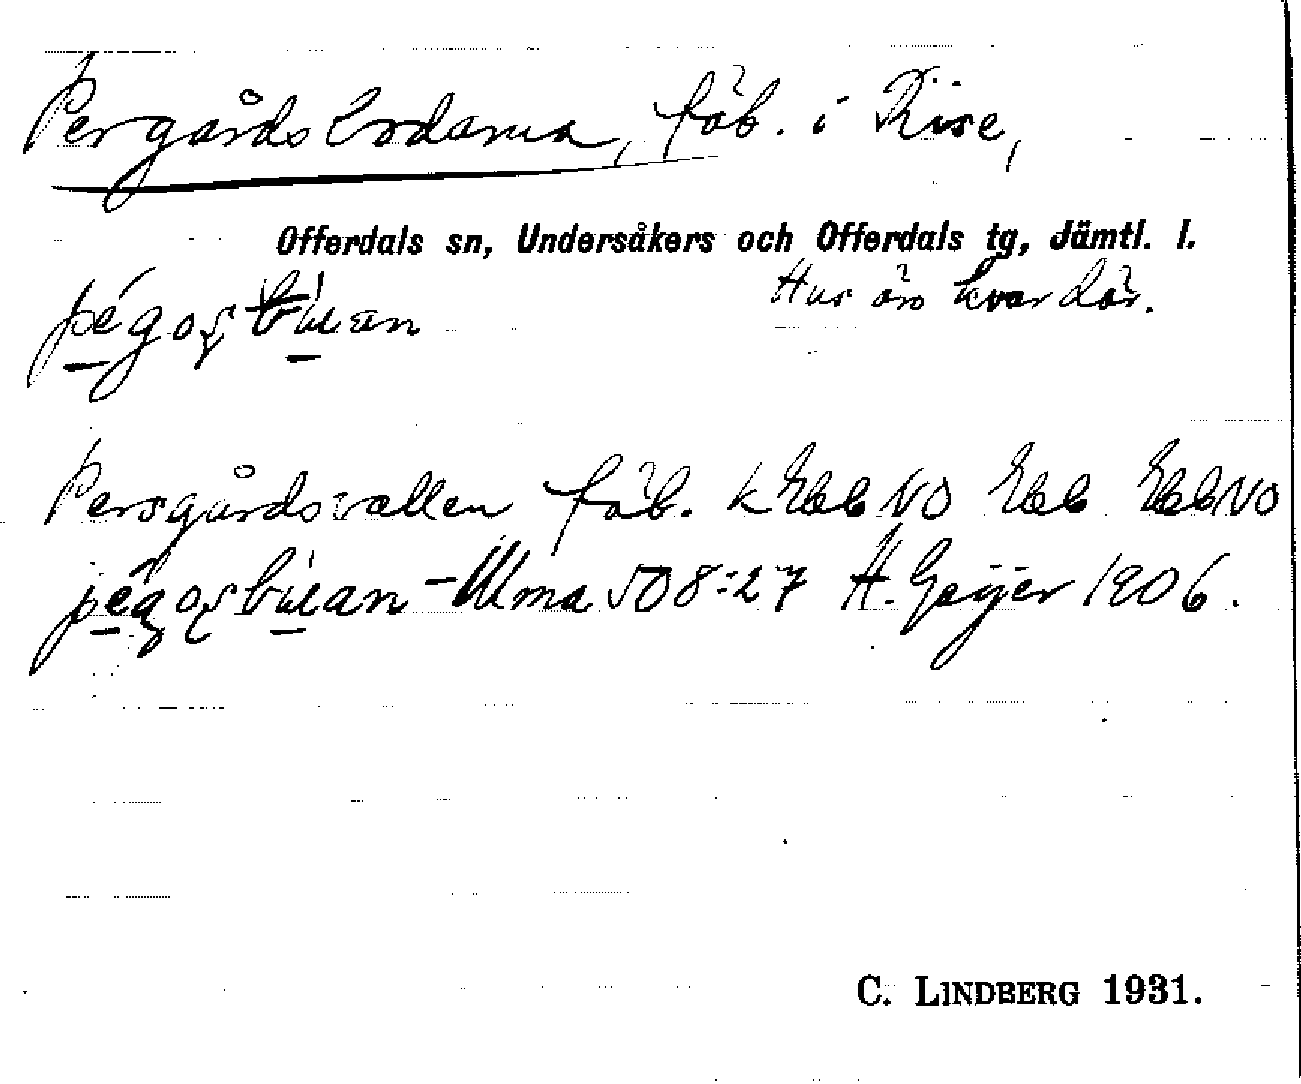 Pergårdsbodarna, fäb. i Rise,
Offerdals sn, Undersåkers och Offerdals tg, Jämtl. l.
pégoșbúan Hus äro kvar där.
Persgårdsvallen fäb. k Ebl NO Ebl EblNO
pégoșbúan - Ulma 508:27 H. Geijer 1906.
C. LINDBERG 1931.